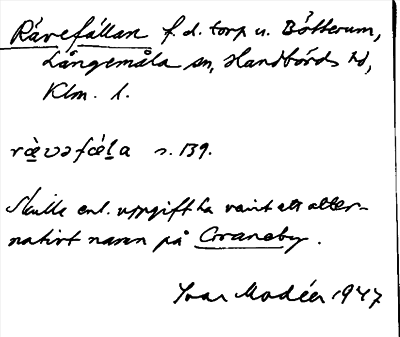 Rävefällan f.d. torp u. Bötterum,
Långemåla sn, Handbörds hd,
Klm. l.
rævəfæla s. 139.
Skulle enl. uppgift ha varit ett alter-
nativt namn på Graneby.
Ivar Modéer 1947